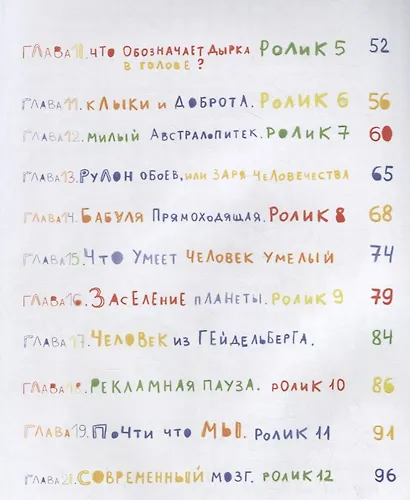 ГЛАВА 10. ЧТО ОБОЗНАЧАЕТ ДЫРКА В ГОЛОВЕ? РОЛИК 5 52
ГЛАВА 11. КЛЫКИ И ДОБРОТА. РОЛИК 6 56
ГЛАВА 12. МИЛЫЙ АВСТРАЛОПИТЕК. РОЛИК 7 60
ГЛАВА 13. РУЛОН ОБОЕВ, ИЛИ ЗАРЯ ЧЕЛОВЕЧЕСТВА 65
ГЛАВА 14. БАБУЛЯ ПРЯМОХОДЯЩАЯ. РОЛИК 8 68
ГЛАВА 15. ЧТО УМЕЕТ ЧЕЛОВЕК УМЕЛЫЙ 74
ГЛАВА 16. ЗАСЕЛЕНИЕ ПЛАНЕТЫ. РОЛИК 9 79
ГЛАВА 17. ЧЕЛОВЕК ИЗ ГЕЙДЕЛЬБЕРГА. 84
ГЛАВА 18. РЕКЛАМНАЯ ПАУЗА. РОЛИК 10 86
ГЛАВА 19. ПОЧТИ ЧТО МЫ. РОЛИК 11 91
ГЛАВА 20. СОВРЕМЕННЫЙ МОЗГ. РОЛИК 12 96